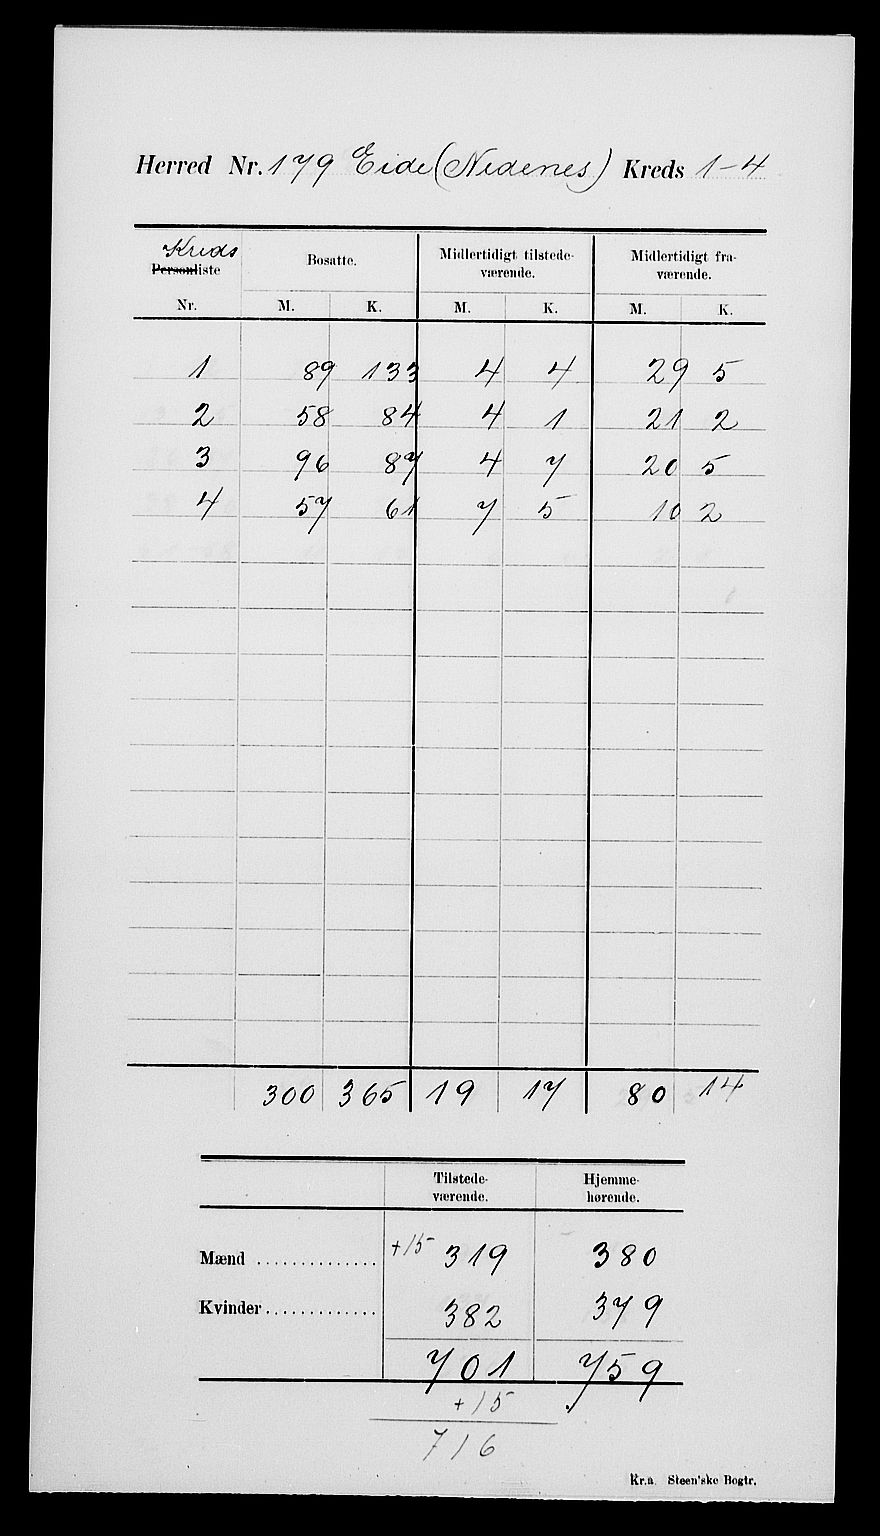 Herred Nr. 179 Eide (Nedenes) Kreds 1-4
Kreds
Personliste
Nr.
Bosatte.
M. K.
Midlertidigt tilstede-
værende.
M. K.
Midlertidigt fra-
værende.
M. K.
1 89 133 4 4 29 5
2 58 84 4 1 21 2
3 96 87 4 7 20 5
4 57 61 7 5 10 2
300 365 19 17 80 14
Tilstede-
værende.
Hjemme-
hørende.
Mænd .............. +15 319 380
Kvinder ............. 382 379
701 759
+15
716
Kr.a. Steen'ske Bogtr.